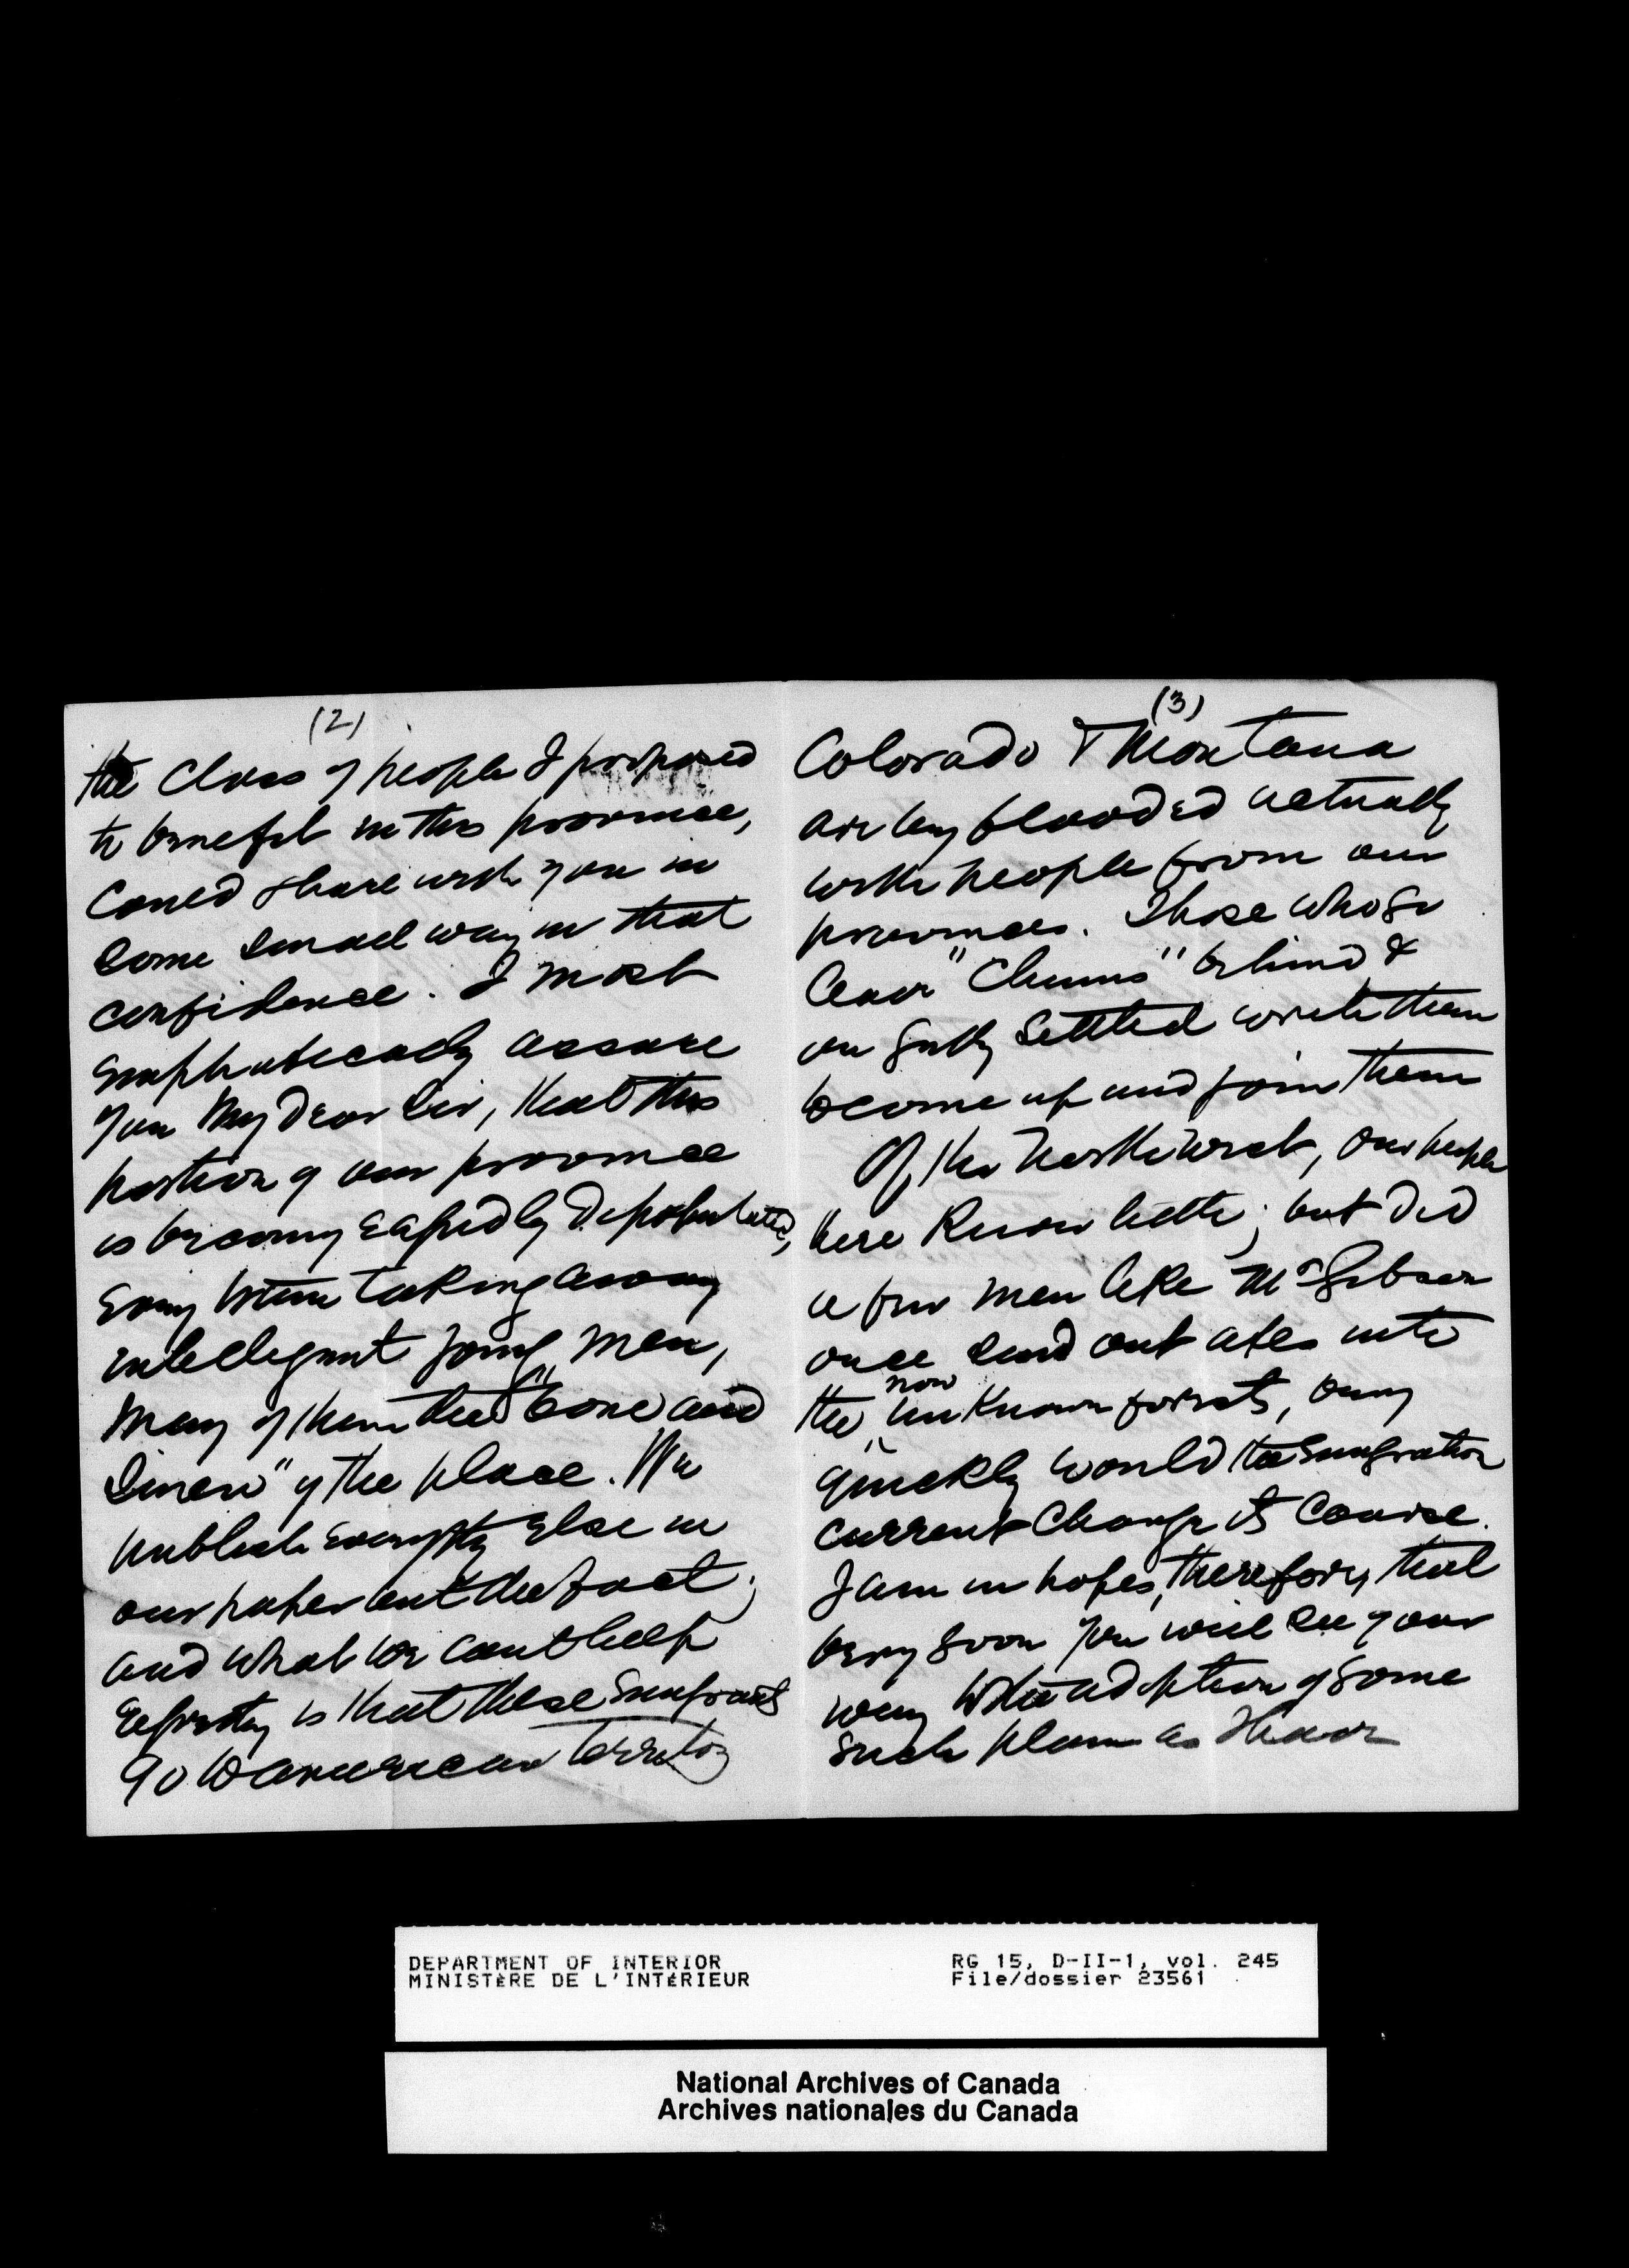 (2)
the Class of people I proposed
to benefit in this province,
could share with you in
some small way in that
confidence. I most
emphatically assure
you My Dear Sir, that this
portion of our province
is becoming rapidly depopulated,
Every train taking away
intelligent young men,
many of them the "bone and
Sinew" of the place. We
publish everything else in
our paper but the fact;
and what we can't help
regretting is that these emigrants
go to american Territory
(3)
Colorado & Montana
are being flooded actually
with people from our
provinces. Those who go
leave "Chums" behind &
on getting settled write them
to come up and join them
Of the North West, our people
here know little; but did
a few men like Mr Gibson
once send out axes into
the now unknown forests, very
quickly would the emigration
current change its course.
I am in hopes, therefore, that
very soon you will see your
way to the adoption of some
such plan as I have
DEPARTMENT OF INTERIOR
MINISTÈRE DE L'INTÉRIEUR
RG 15, D-II-1, vol. 245
File/dossier 23561
National Archives of Canada
Archives nationales du Canada